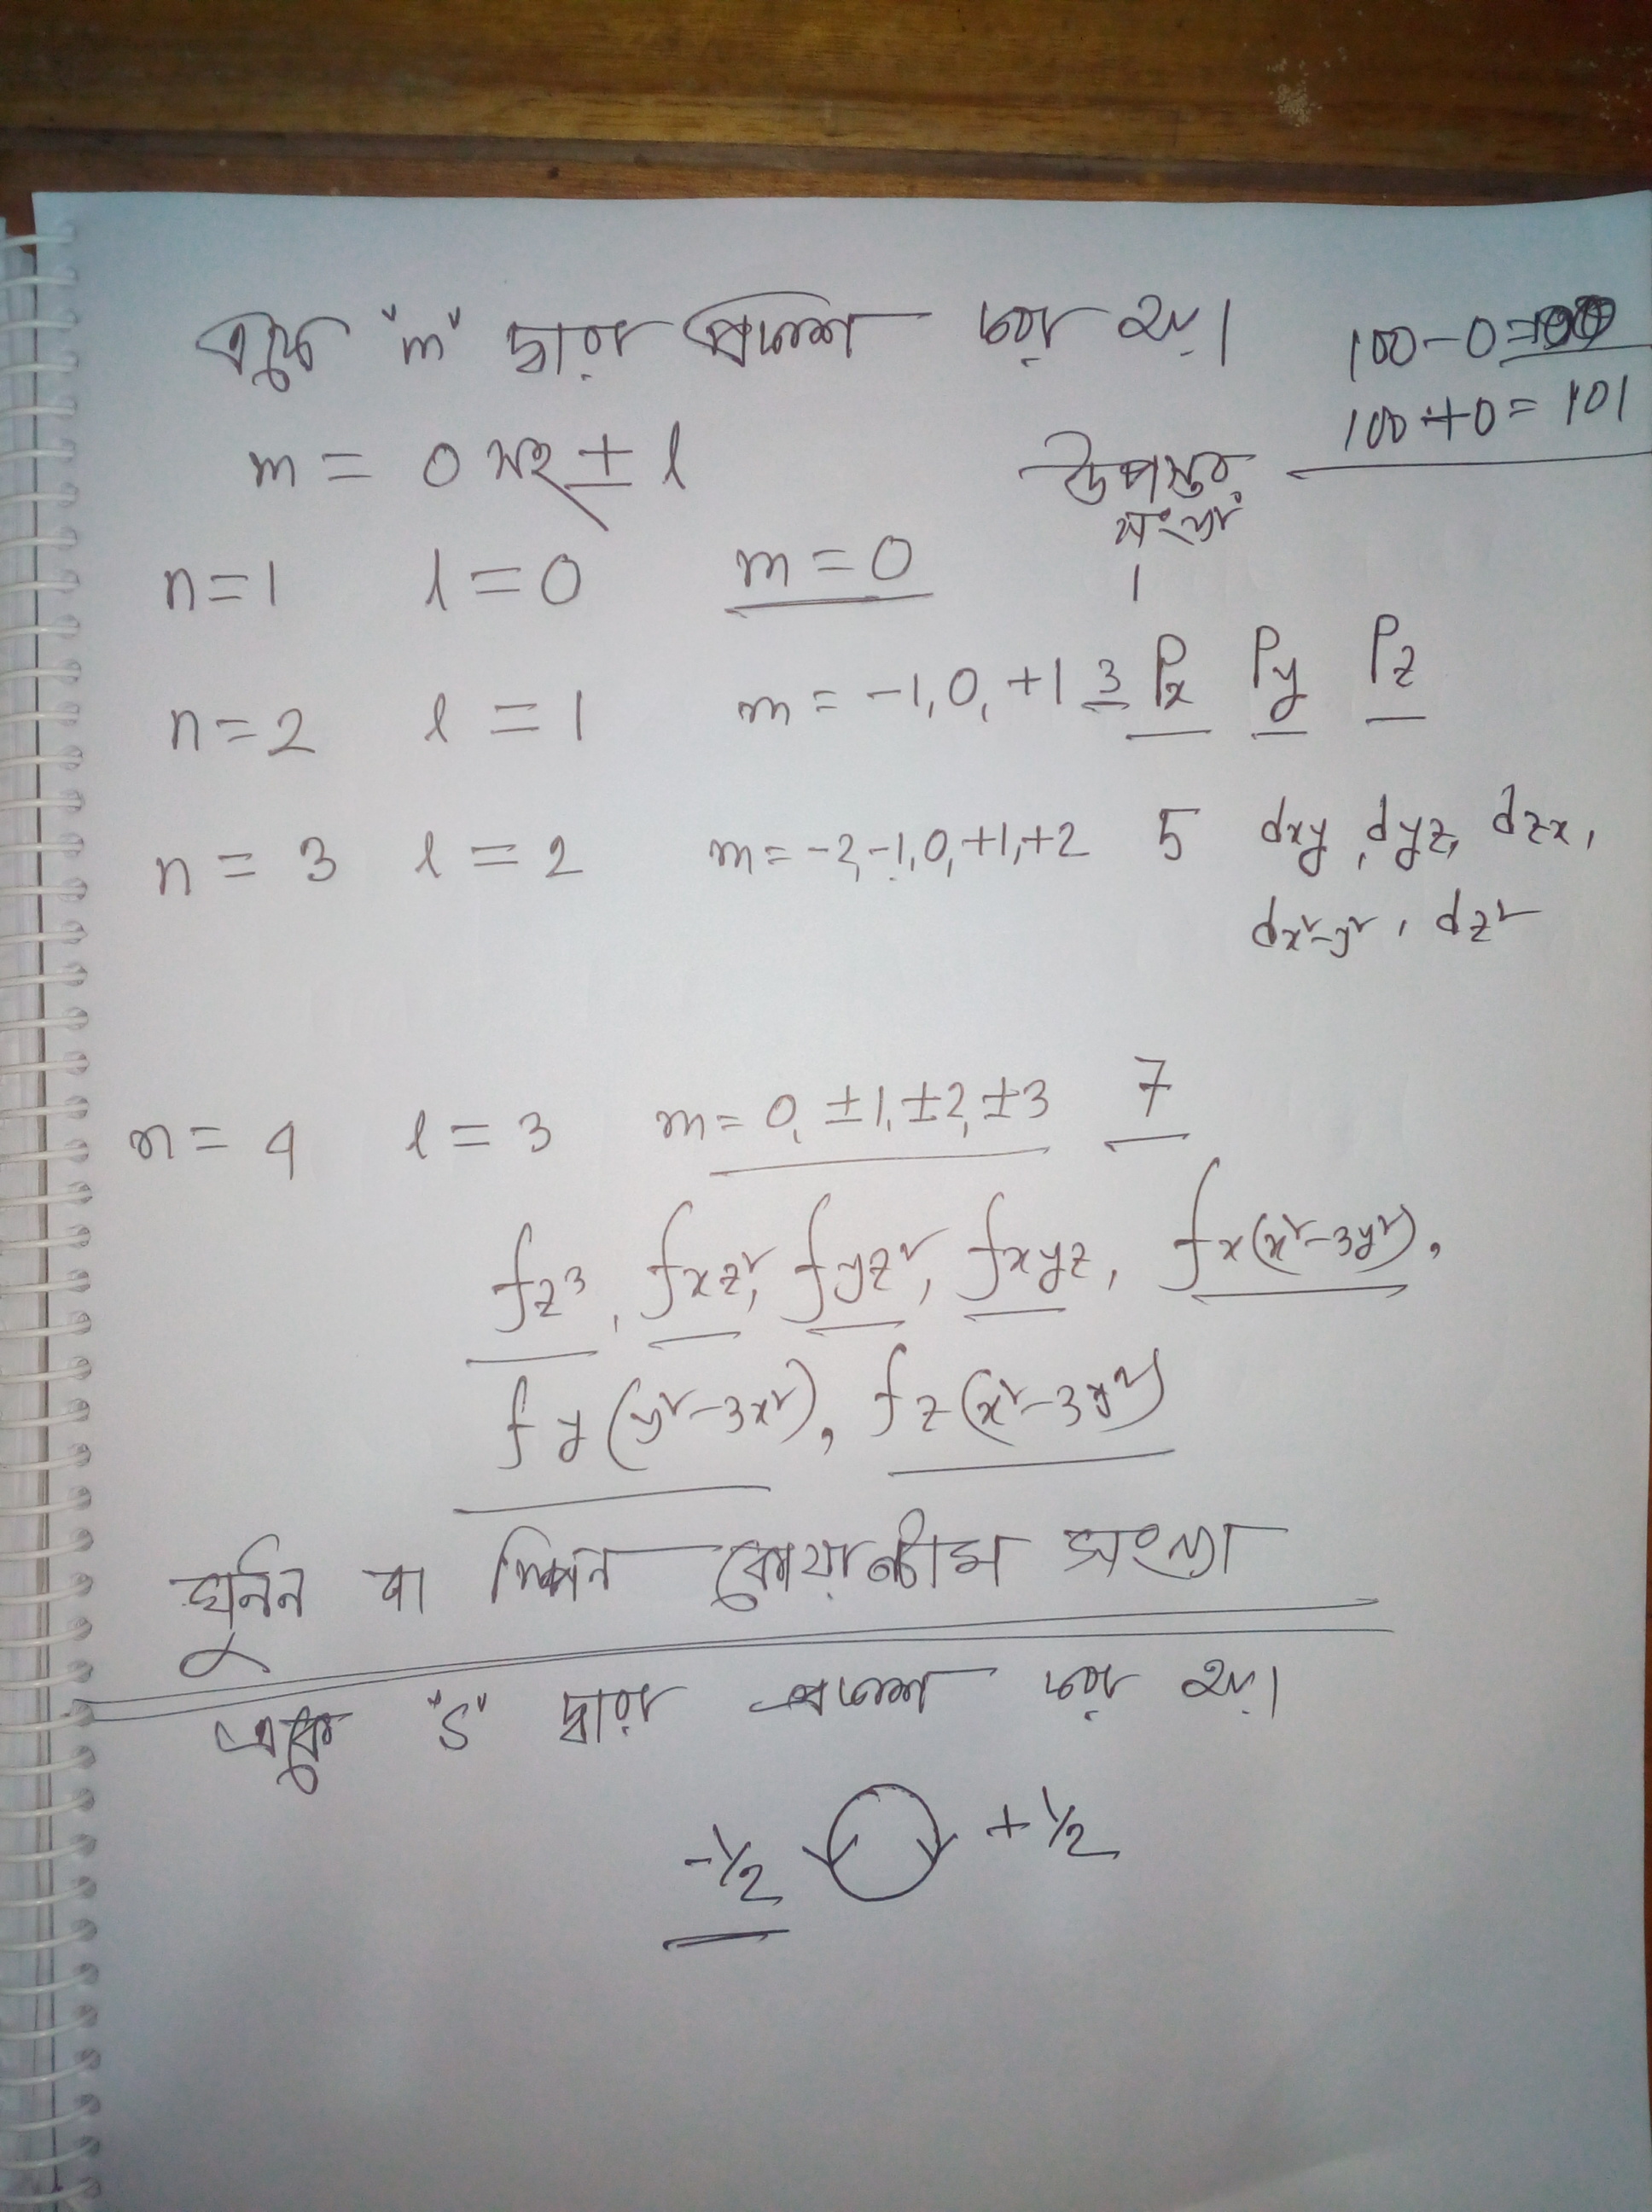 একে "m" দ্বারা প্রকাশ করা হয়।
100-0=
100+0= 101
m = 0 সহ ± l
উপস্তর সংখ্যা
n=1 l=0 m=0 1
n=2 l=1 m=-1,0,+1 3 Px Py Pz
n=3 l=2 m=-2,-1,0,+1,+2 5 dxy, dyz, dzx,
dx²-y², dz²
n=4 l=3 m=0,±1,±2,±3 7
fz³, fxz², fyz², fxyz, fx(x²-3y²),
fy(y²-3x²), fz(x²-3y²)
ঘূর্নন বা স্পিন কোয়ান্টাম সংখ্যা
একে "S" দ্বারা প্রকাশ করা হয়।
-½ +½